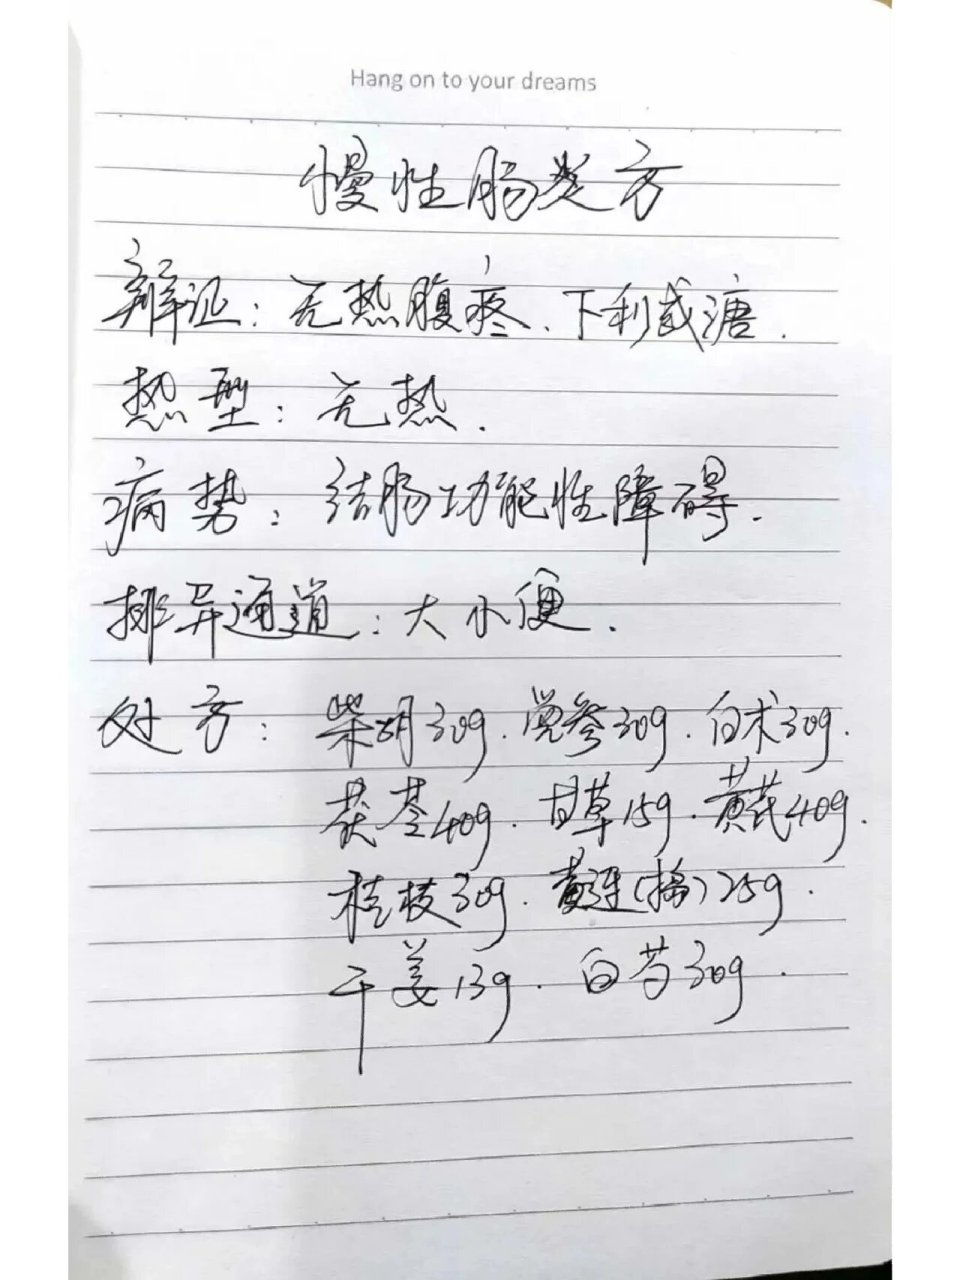 Hang on to your dreams
慢性肠炎方
辩证：无热腹疼、下利或溏.
热型：无热.
病势：结肠功能性障碍.
排异通道：大小便.
处方：柴胡30g.党参30g.白术30g.
茯苓40g.甘草15g.黄芪40g.
桂枝30g.黄连(捣)25g.
干姜13g.白芍30g.